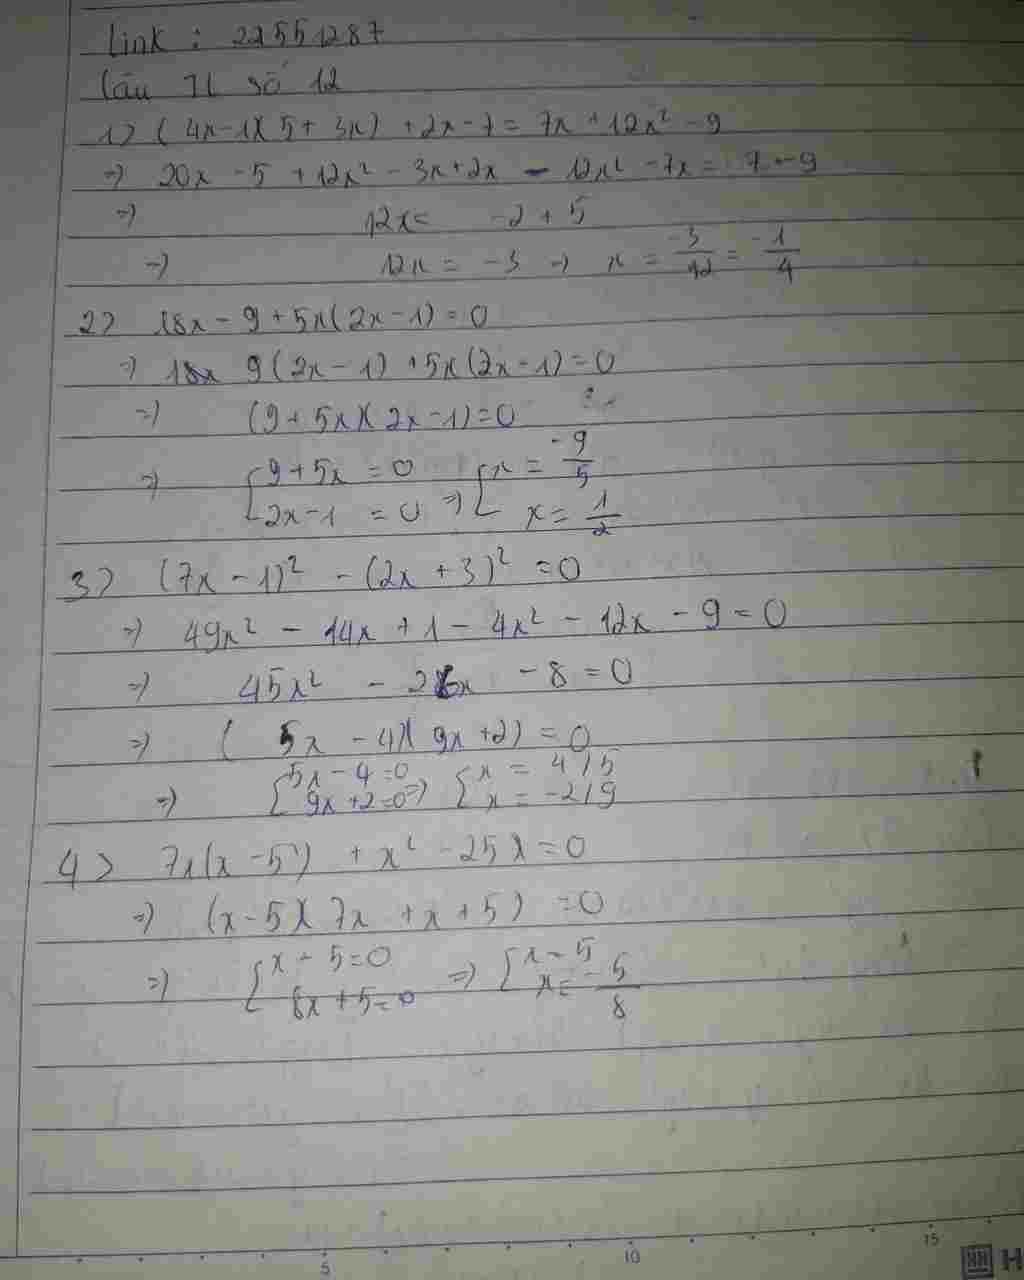 Link : 22551287
Câu TL số 12
1) (4x-1)(5+3x) +2x-7 = 7x+12x² -9
=> 20x -5 +12x² -3x+2x - 12x² -7x = 7-9
=> 12x = -2 + 5
=> 12x = -3 => x = -3/12 = -1/4
2) 18x - 9 + 5x(2x-1) = 0
=> 9(2x-1) +5x(2x-1) = 0
=> (9+5x)(2x-1) = 0
=> [9+5x = 0 => [x = -9/5
2x-1 = 0 x = 1/2
3) (7x-1)² - (2x+3)² = 0
=> 49x² - 14x + 1 - 4x² - 12x - 9 = 0
=> 45x² - 26x - 8 = 0
=> (5x - 4)(9x+2) = 0
=> [5x-4=0 => [x = 4/5
9x+2=0 x = -2/9
4) 7x(x-5) + x² - 25 = 0
=> (x-5)(7x + x + 5) = 0
=> [x - 5=0 => [x = 5
8x+5=0 x = -5/8
5 10 15
H